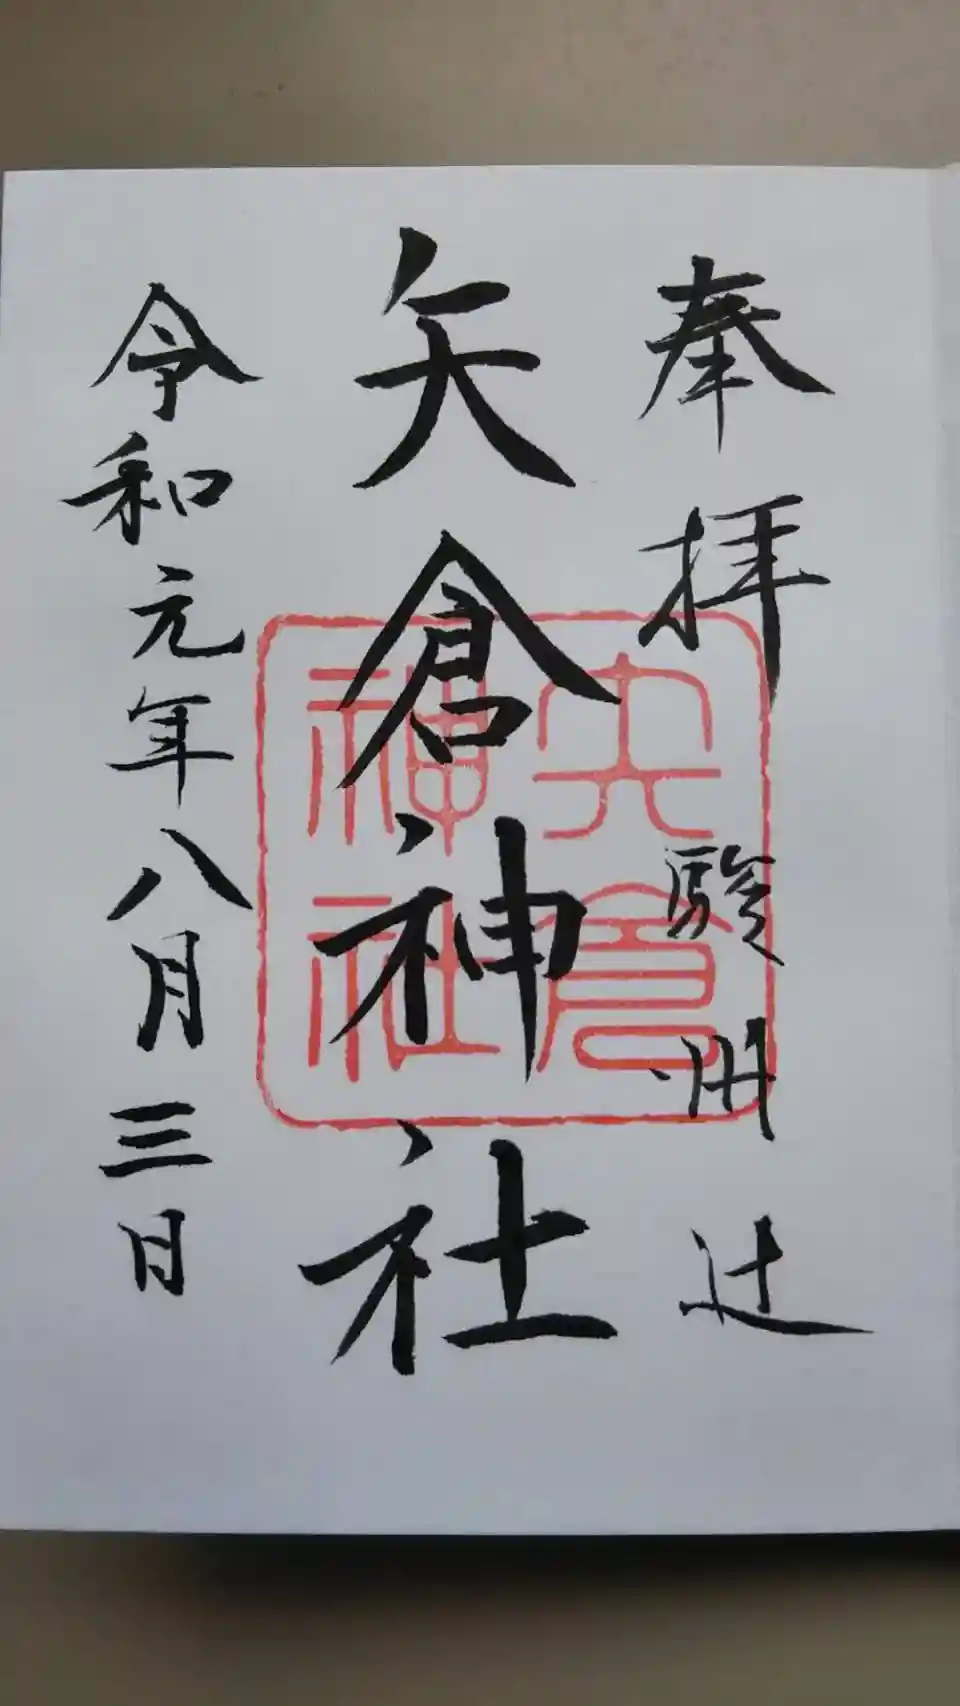 奉拝
駿州辻
矢倉神社
矢倉神社
令和元年八月三日